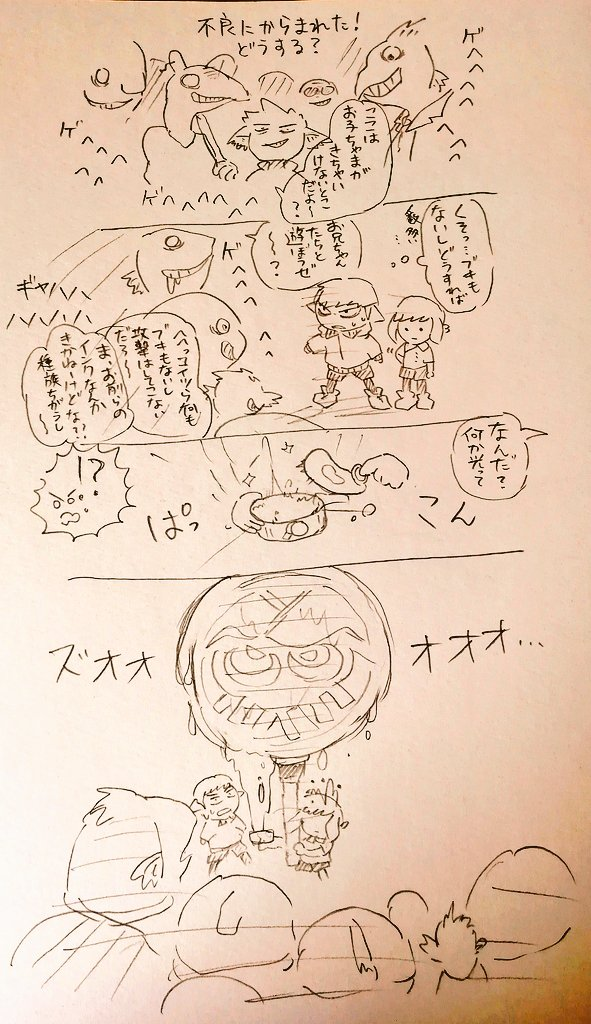 不良にからまれた!
どうする?
ゲへへへへ
ここは
お子ちゃまが
きちゃい
けないとこ
だよ〜
?
ゲへへへへ
ゲへへへへ
くそっ…ブキも
ないしどうすれば
数多い…
お兄ちゃん
たちと
遊ぼうぜ
〜?
ゲへへへへ
へへっコイツら何も
ブキもないし
攻撃はしてこない
だろ〜
ま、おがらの
インクなんか
きかねーけどな??
種族ちがうし
〜
ギャハハハ
ハハハハ
なんだ?
何か光って
こん
ぱっ
!?
ズオオ
オオオ…